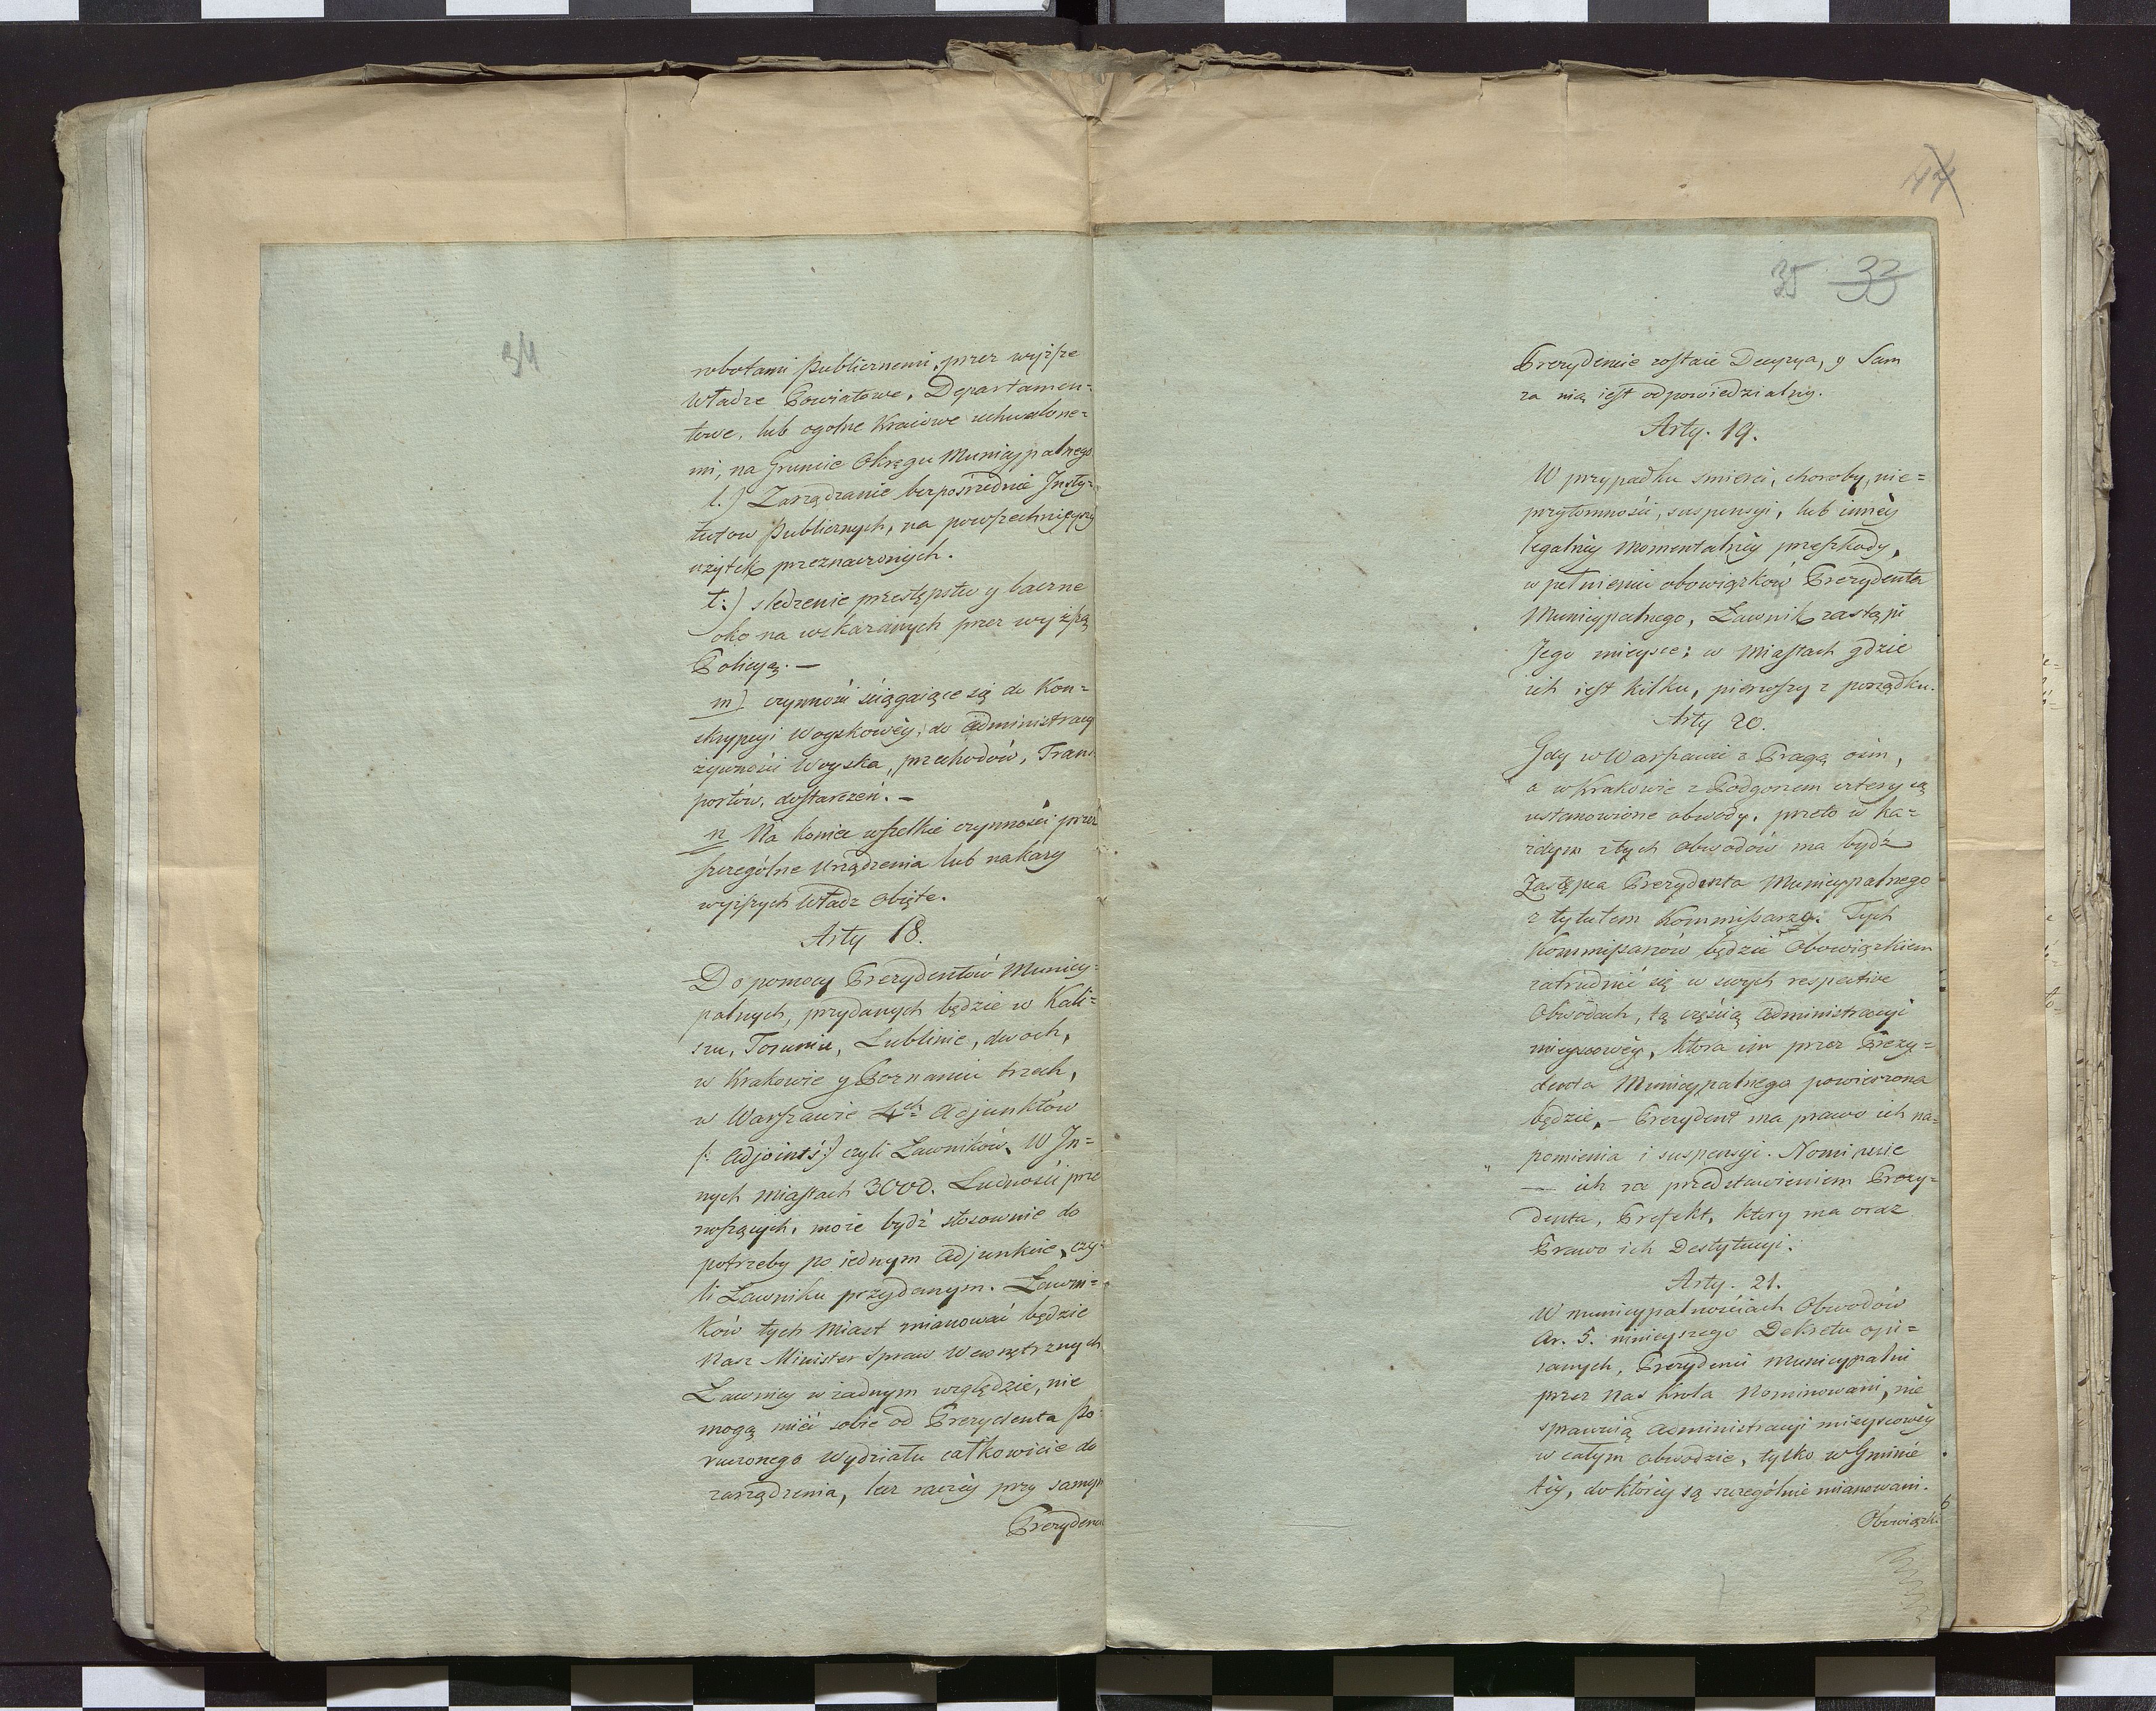 34
robotami publicznemi, przez wyższe
Władze Powiatowe, Departamen=
towe, lub ogolne Kraiowe uchwalone=
mi, na Gruncie Okręgu Municypalnego
l.) Zarządzanie bezpośrednie Insty=
tutow publicznych, na powszechnieyszy
użytek przeznaczonych.
ł:) sledzenie przestępstw y baczne
oko na wskazanych przez wyższą
Policyą. —
m) czynności sciągaiące się do Kon=
skrypcyi Woyskowéy, do administracyi
żywności Woyska, przechodów, Trans
portów, dostarczeń. —
n Na koniec wszelkie czynności przez
szczególne urządzenia lub nakazy
wyższych Władz obięte.
Arty 18.
Do pomocy Prezydentów Municy=
palnych, przydanych będzie w Kali=
szu, Toruniu, Lublinie, dwoch,
w Krakowie y Poznaniu trzech,
w Warszawie 4ch Adjunktów
(: Adjoints :) czyli Ławników, W In=
nych miastach 3000. Ludności prze
noszących, może bydź stosownie do
potrzeby po iednym Adjunkcie, czy=
li Ławniku przydanym. Ławni=
ków tych Miast mianować będzie
Nasz Minister Spraw Wewnętrznych
Ławnicy w żadnym względzie, nie
mogą mieć sobie od Prezydenta po
ruczonego Wydziału całkowicie do
zarządzenia, lecz raczéy przy samym
Prezydencie
44
35 33
Prezydencie zostaie Decyzya, y Sam
za nią iest odpowiedzialny.
Arty. 19.
W przypadku smierci, choroby, nie=
przytomności, suspensyi, lub innéy
legalnéy momentalnéy przeszkody,
w pełnieniu obowiązków Prezydenta
Municypalnego, Ławnik zastąpi
Jego mieysce; w Miastach gdzie
ich iest kilku, pierwszy z porządku.
Arty 20.
Gdy w Warszawie z Pragą ośm,
a w Krakowie z Podgorzem cztery są
ustanowione obwody, przeto w ka=
żdym z tych obwodów ma bydź
Zastępca Prezydenta Municypalnego
z tytułem Kommissarza. Tych
Kommissarzów będzie Obowiązkiem
zatrudnić się w swych respective
Obwodach, tą częścią administracyi
mieyscowéy, ktora im przez Prezy=
denta Municypalnego powierzona
będzie. — Prezydent ma prawo ich na=
pomienia i suspensyi. Nominuie
— ich za przedstawieniem Prezy=
denta, Prefekt, ktory ma oraz
Prawo ich Destytucyi.
Arty. 21.
W municypalnościach Obwodów
Ar. 5. ninieyszego Dekretu opi=
sanych, Prezydenci municypalni
przez Nas Krola Nominowani, nie
sprawuią administracyi mieyscowéy
w całym obwodzie, tylko w Gminie
téy, do któréy są szczególnie mianowani.
Obowiązki